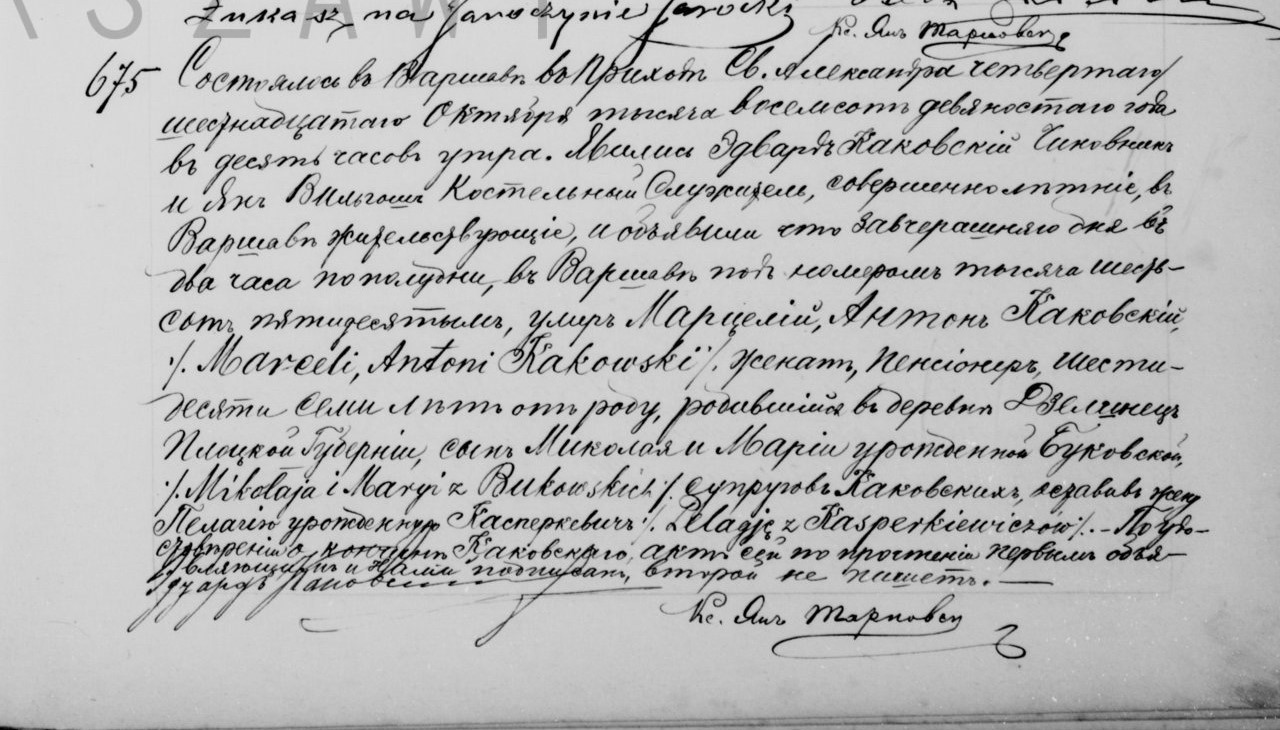 SZAW
Łukasz na Jaroczynie Jarocki
Кс. Янъ Тарновск
675 Состоялось въ Варшавѣ въ Приходѣ Св. Александра четвертаго/
шестнадцатаго Октября тысяча восемсотъ девяностаго года
въ десять часовъ утра. Явились Эдвардъ Каковскій Чиновникъ
и Янъ Вильгошъ Костельный Служитель, совершеннолѣтніе, въ
Варшавѣ жительствующіе, и объявили что завчерашняго дня въ
два часа по полудни, въ Варшавѣ подъ номеромъ тысяча шесть-
сотъ пятидесятымъ, умеръ Марцелій, Антонъ Каковскій,
/. Marceli, Antoni Kakowski /. женатъ, пенсіонеръ, шести-
десяти семи лѣтъ отъ роду, родившійся въ деревнѣ
Плоцкой Губерніи, сынъ Миколая и Маріи урожденной Буковской,
/. Mikołaja i Maryi z Bukowskich /. супруговъ Каковскихъ, оставивъ жену
Пелагію урожденную Касперкевичъ /. Pelagję z Kasperkiewiczów /. - По удо-
стовѣреніи о кончинѣ Каковскаго, актъ сей по прочтеніи первымъ объя-
вляющимъ и Нами подписанъ, второй не пишетъ. —
Эдуардъ Каковскій
Кс. Янъ Тарновск